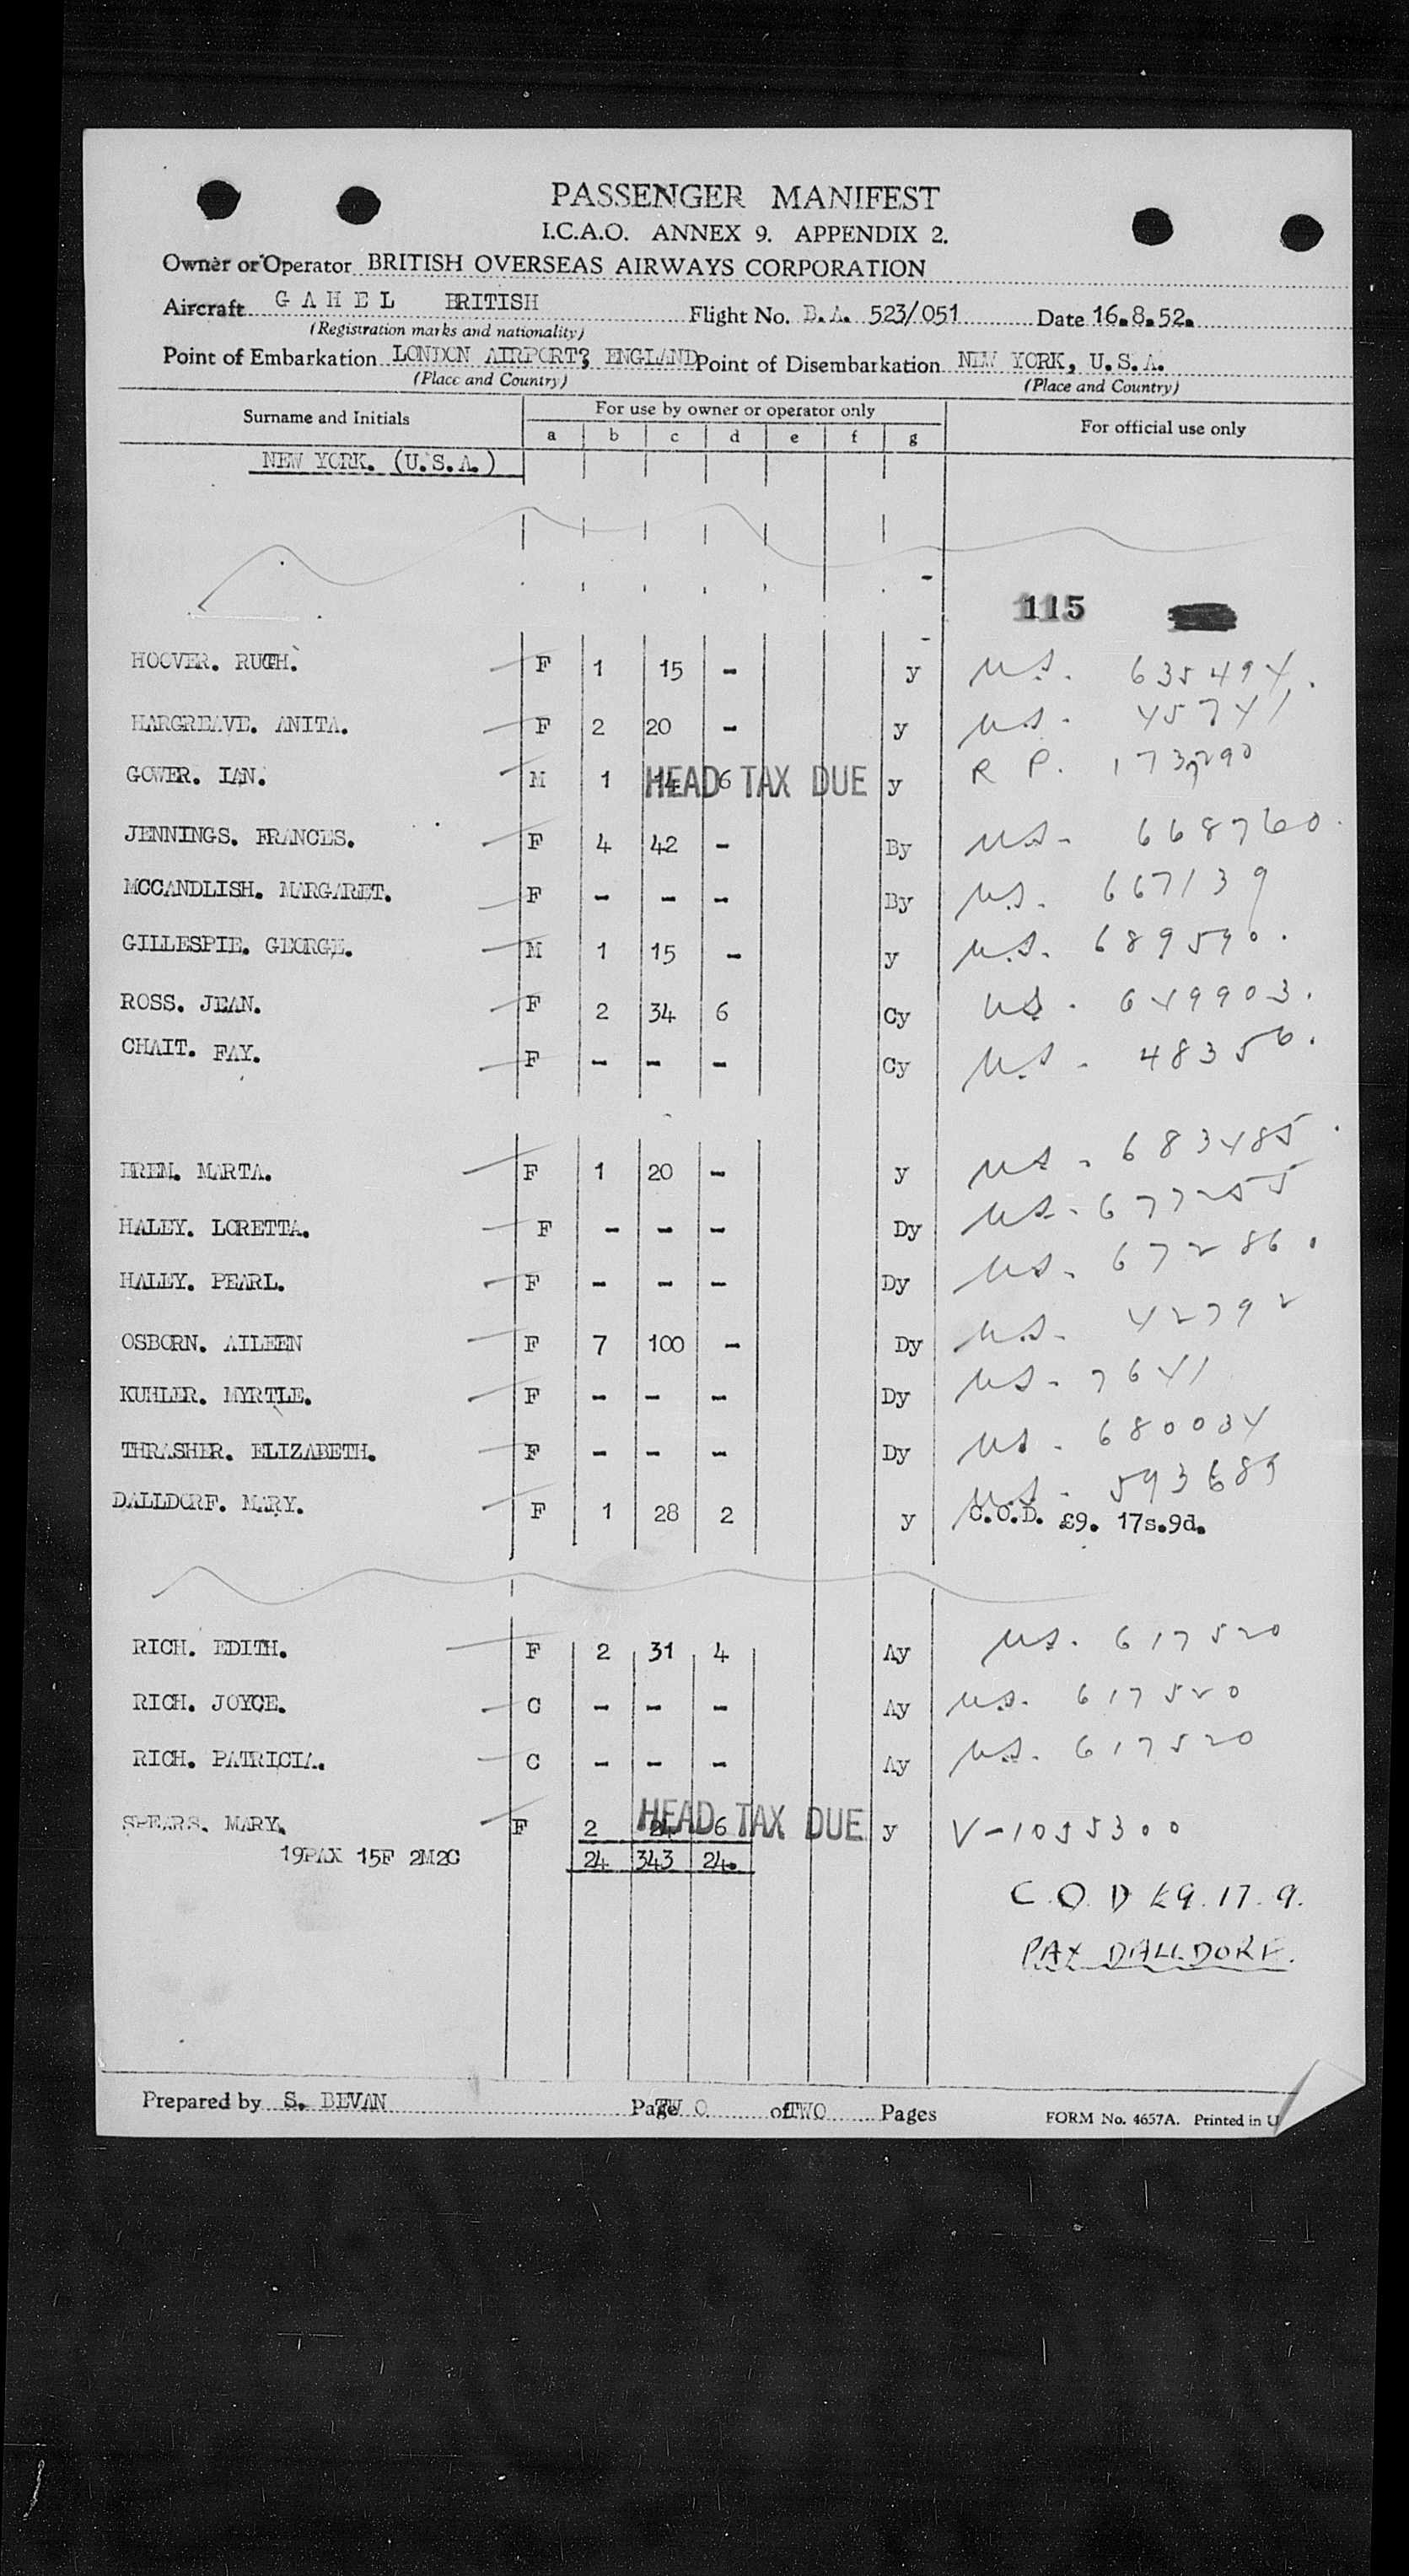 PASSENGER MANIFEST
I.C.A.O. ANNEX 9. APPENDIX 2.
Owner or Operator BRITISH OVERSEAS AIRWAYS CORPORATION
Aircraft G A H E L BRITISH Flight No. B.A. 523/051 Date 16.8.52.
(Registration marks and nationality)
Point of Embarkation LONDON AIRPORT, ENGLAND Point of Disembarkation NEW YORK, U.S.A.
(Place and Country) (Place and Country)
Surname and Initials For use by owner or operator only For official use only
a b c d e f g
NEW YORK. (U.S.A.)
115
HOOVER. RUTH. F 1 15 - y U.S. 635494.
HARGREAVE. ANITA. F 2 20 - y U.S. 45741
GOWER. IAN. M 1 14 6 HEAD TAX DUE y R P. 173290
JENNINGS. FRANCES. F 4 42 - By U.S. 668760.
MCCANDLISH. MARGARET. F - - - By U.S. 667139
GILLESPIE. GEORGE. M 1 15 - y U.S. 689590.
ROSS. JEAN. F 2 34 6 Cy U.S. 649903.
CHAIT. FAY. F - - - Cy U.S. 48356.
BREM. MARTA. F 1 20 - y U.S. 683485.
HALEY. LORETTA. F - - - Dy U.S. 677255
HALEY. PEARL. F - - - Dy U.S. 67286.
OSBORN. AILEEN F 7 100 - Dy U.S. 42792
KUHLER. MYRTLE. F - - - Dy U.S. 7641
THRASHER. ELIZABETH. F - - - Dy U.S. 680034
DALLDORF. MARY. F 1 28 2 y U.S. 593689
C.O.D. £9. 17s.9d.
RICH. EDITH. F 2 31 4 Ay U.S. 617520
RICH. JOYCE. C - - - Ay U.S. 617520
RICH. PATRICIA. C - - - Ay U.S. 617520
SPEARS. MARY. F 2 24 6 HEAD TAX DUE y V-1055300
19PAX 15F 2M2C 24 343 24.
C.O.D £9.17.9.
PAX DALLDORF.
Prepared by S. BEVAN Page TWO of TWO Pages FORM No. 4657A. Printed in U